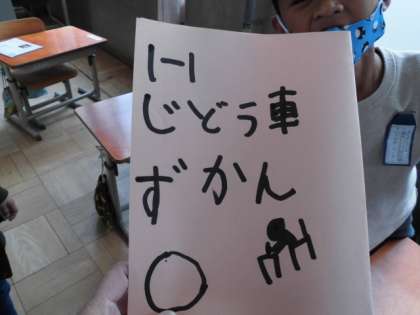 1-1
じどう車
ずかん